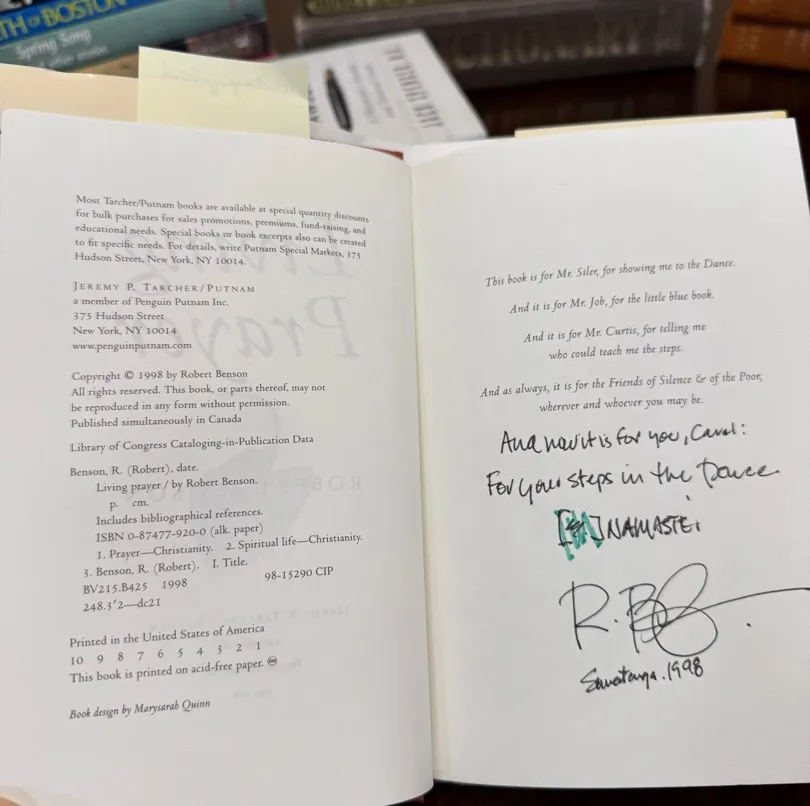 TH OF BOSTON
Spring Song
and other stories
DICTIONARY
Most Tarcher/Putnam books are available at special quantity discounts
for bulk purchases for sales promotions, premiums, fund-raising, and
educational needs. Special books or book excerpts also can be created
to fit specific needs. For details, write Putnam Special Markets, 375
Hudson Street, New York, NY 10014.
Jeremy P. Tarcher/Putnam
a member of Penguin Putnam Inc.
375 Hudson Street
New York, NY 10014
www.penguinputnam.com
Copyright © 1998 by Robert Benson
All rights reserved. This book, or parts thereof, may not
be reproduced in any form without permission.
Published simultaneously in Canada
Library of Congress Cataloging-in-Publication Data
Benson, R. (Robert), date.
Living prayer / by Robert Benson.
p. cm.
Includes bibliographical references.
ISBN 0-87477-920-0 (alk. paper)
1. Prayer—Christianity. 2. Spiritual life—Christianity.
3. Benson, R. (Robert). I. Title.
BV215.B425 1998 98-15290 CIP
248.3'2—dc21
Printed in the United States of America
10 9 8 7 6 5 4 3 2 1
This book is printed on acid-free paper. ♾
Book design by Marysarah Quinn
This book is for Mr. Siler, for showing me to the Dance.
And it is for Mr. Job, for the little blue book.
And it is for Mr. Curtis, for telling me
who could teach me the steps.
And as always, it is for the Friends of Silence & of the Poor,
wherever and whoever you may be.
And now it is for you, Carol:
For your steps in the Dance.
NAMASTE.
R. B
1998